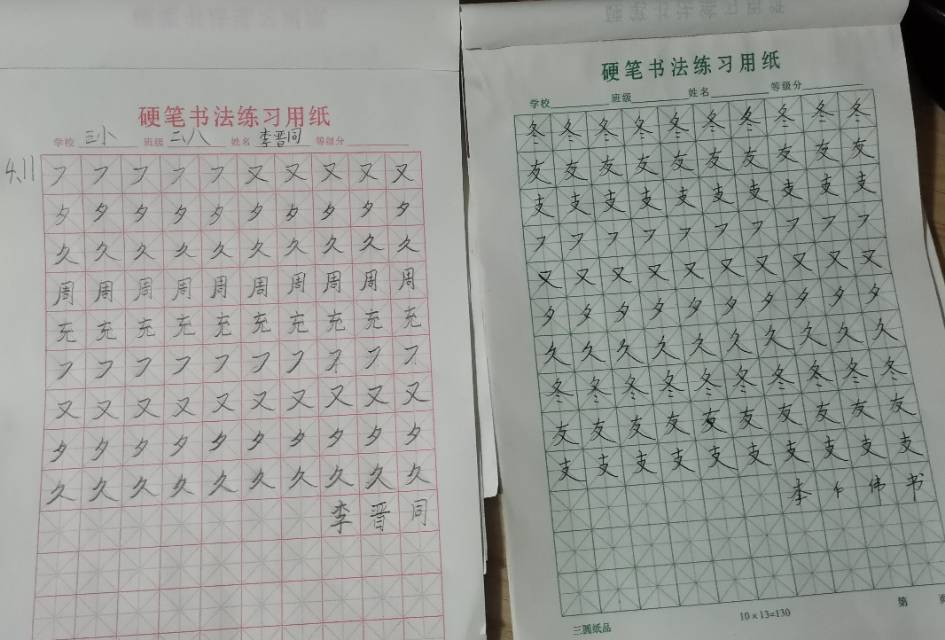 硬笔书法练习用纸
学校 三小 班级 二八 姓名 李晋同 等级分
4.11
フ フ フ フ フ 又 又 又 又 又
夕 夕 夕 夕 夕 夕 夕 夕 夕 夕
久 久 久 久 久 久 久 久 久 久
周 周 周 周 周 周 周 周 周 周
充 充 充 充 充 充 充 充 充 充
フ フ フ フ フ フ フ フ フ フ
又 又 又 又 又 又 又 又 又 又
夕 夕 夕 夕 夕 夕 夕 夕 夕 夕
久 久 久 久 久 久 久 久 久 久
李 晋 同
硬笔书法练习用纸
学校 班级 姓名 等级分
冬 冬 冬 冬 冬 冬 冬 冬 冬 冬
友 友 友 友 友 友 友 友 友 友
支 支 支 支 支 支 支 支 支 支
フ フ フ フ フ フ フ フ フ フ
又 又 又 又 又 又 又 又 又 又
夕 夕 夕 夕 夕 夕 夕 夕 夕 夕
久 久 久 久 久 久 久 久 久 久
冬 冬 冬 冬 冬 冬 冬 冬 冬 冬
友 友 友 友 友 友 友 友 友 友
支 支 支 支 支 支 支 支 支 支
李 伟 书
三圆纸品 10×13=130 第 页